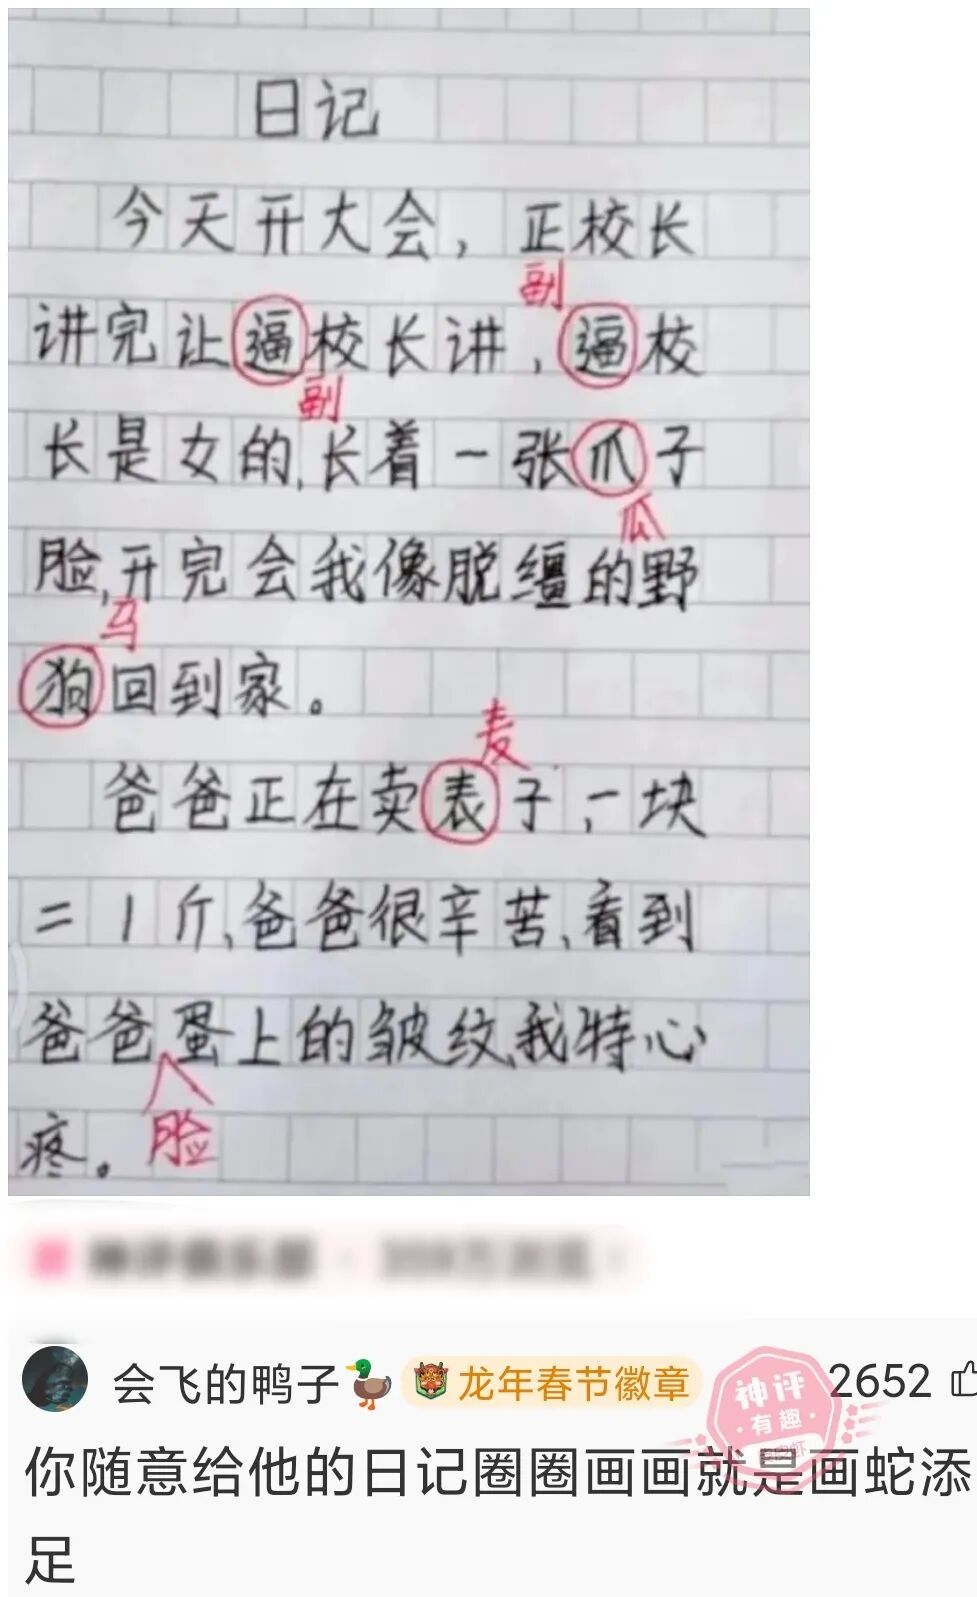 日记
今天开大会，正校长
副
讲完让逼校长讲，逼校
副
长是女的,长着一张爪子
瓜
脸,开完会我像脱缰的野
马
狗回到家。
麦
爸爸正在卖表子,一块
=1斤,爸爸很辛苦,看到
爸爸蛋上的皱纹,我特心
脸
疼。
会飞的鸭子🦆 龙年春节徽章
神评
有趣
2652
你随意给他的日记圈圈画画就是画蛇添
足